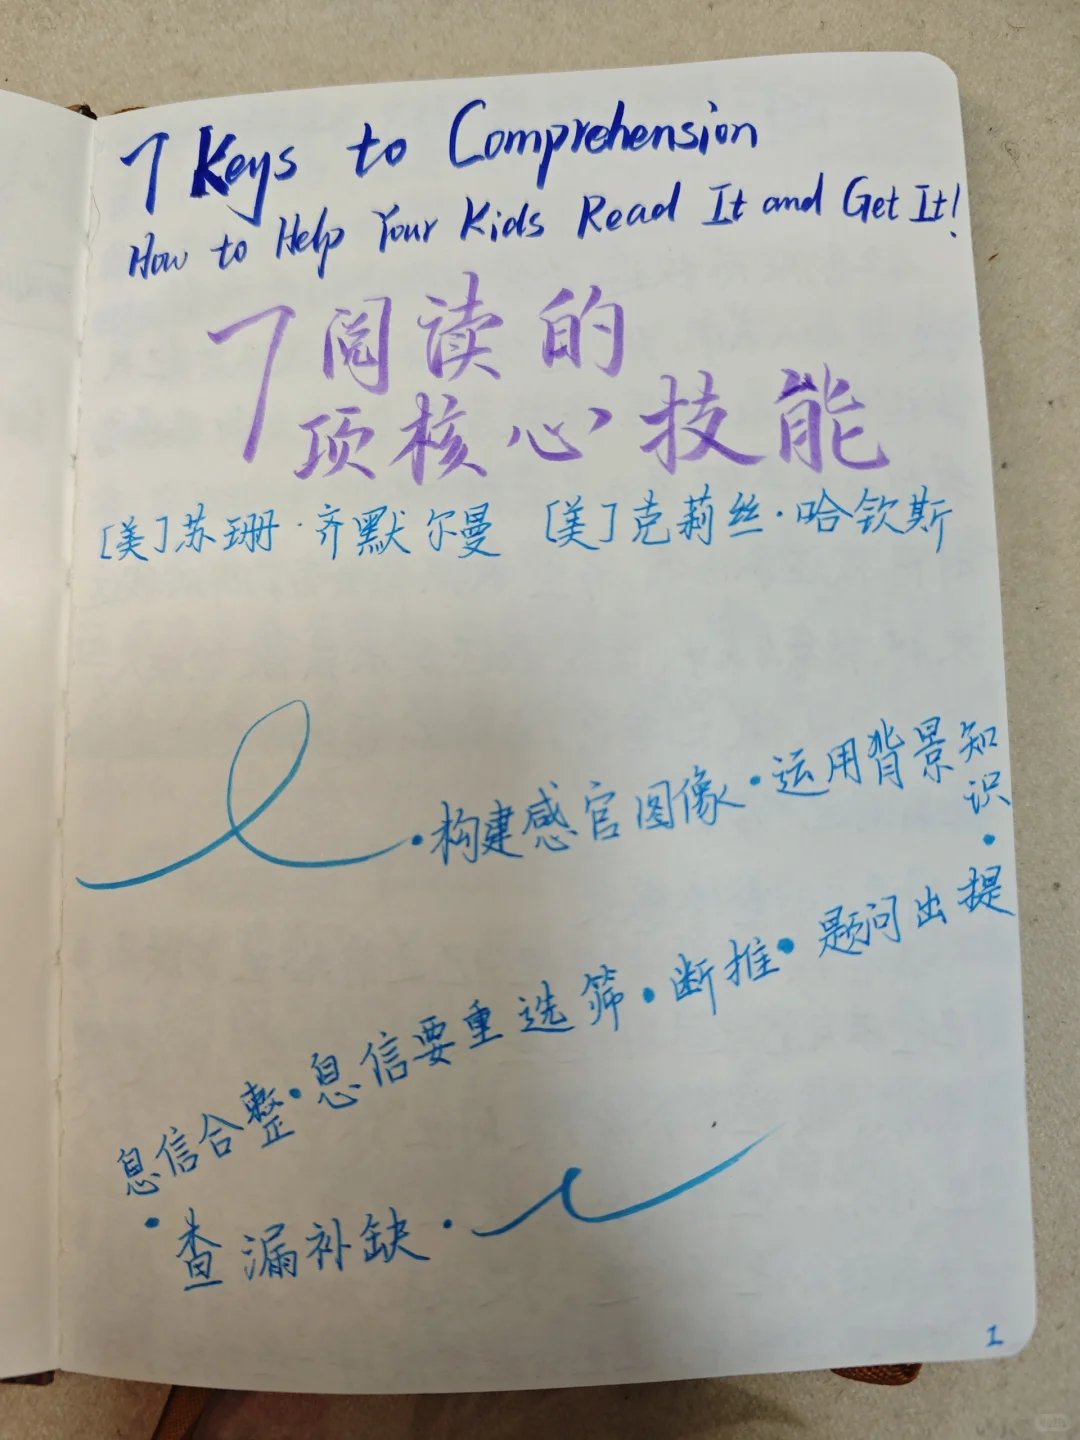 7 Keys to Comprehension
How to Help Your Kids Read It and Get It!
7阅读的
项核心技能
[美]苏珊·齐默尔曼 [美]克莉丝·哈钦斯
·构建感官图像·运用背景知识·
提出问题·推断·筛选重要信息·整合信息
·查漏补缺·
1